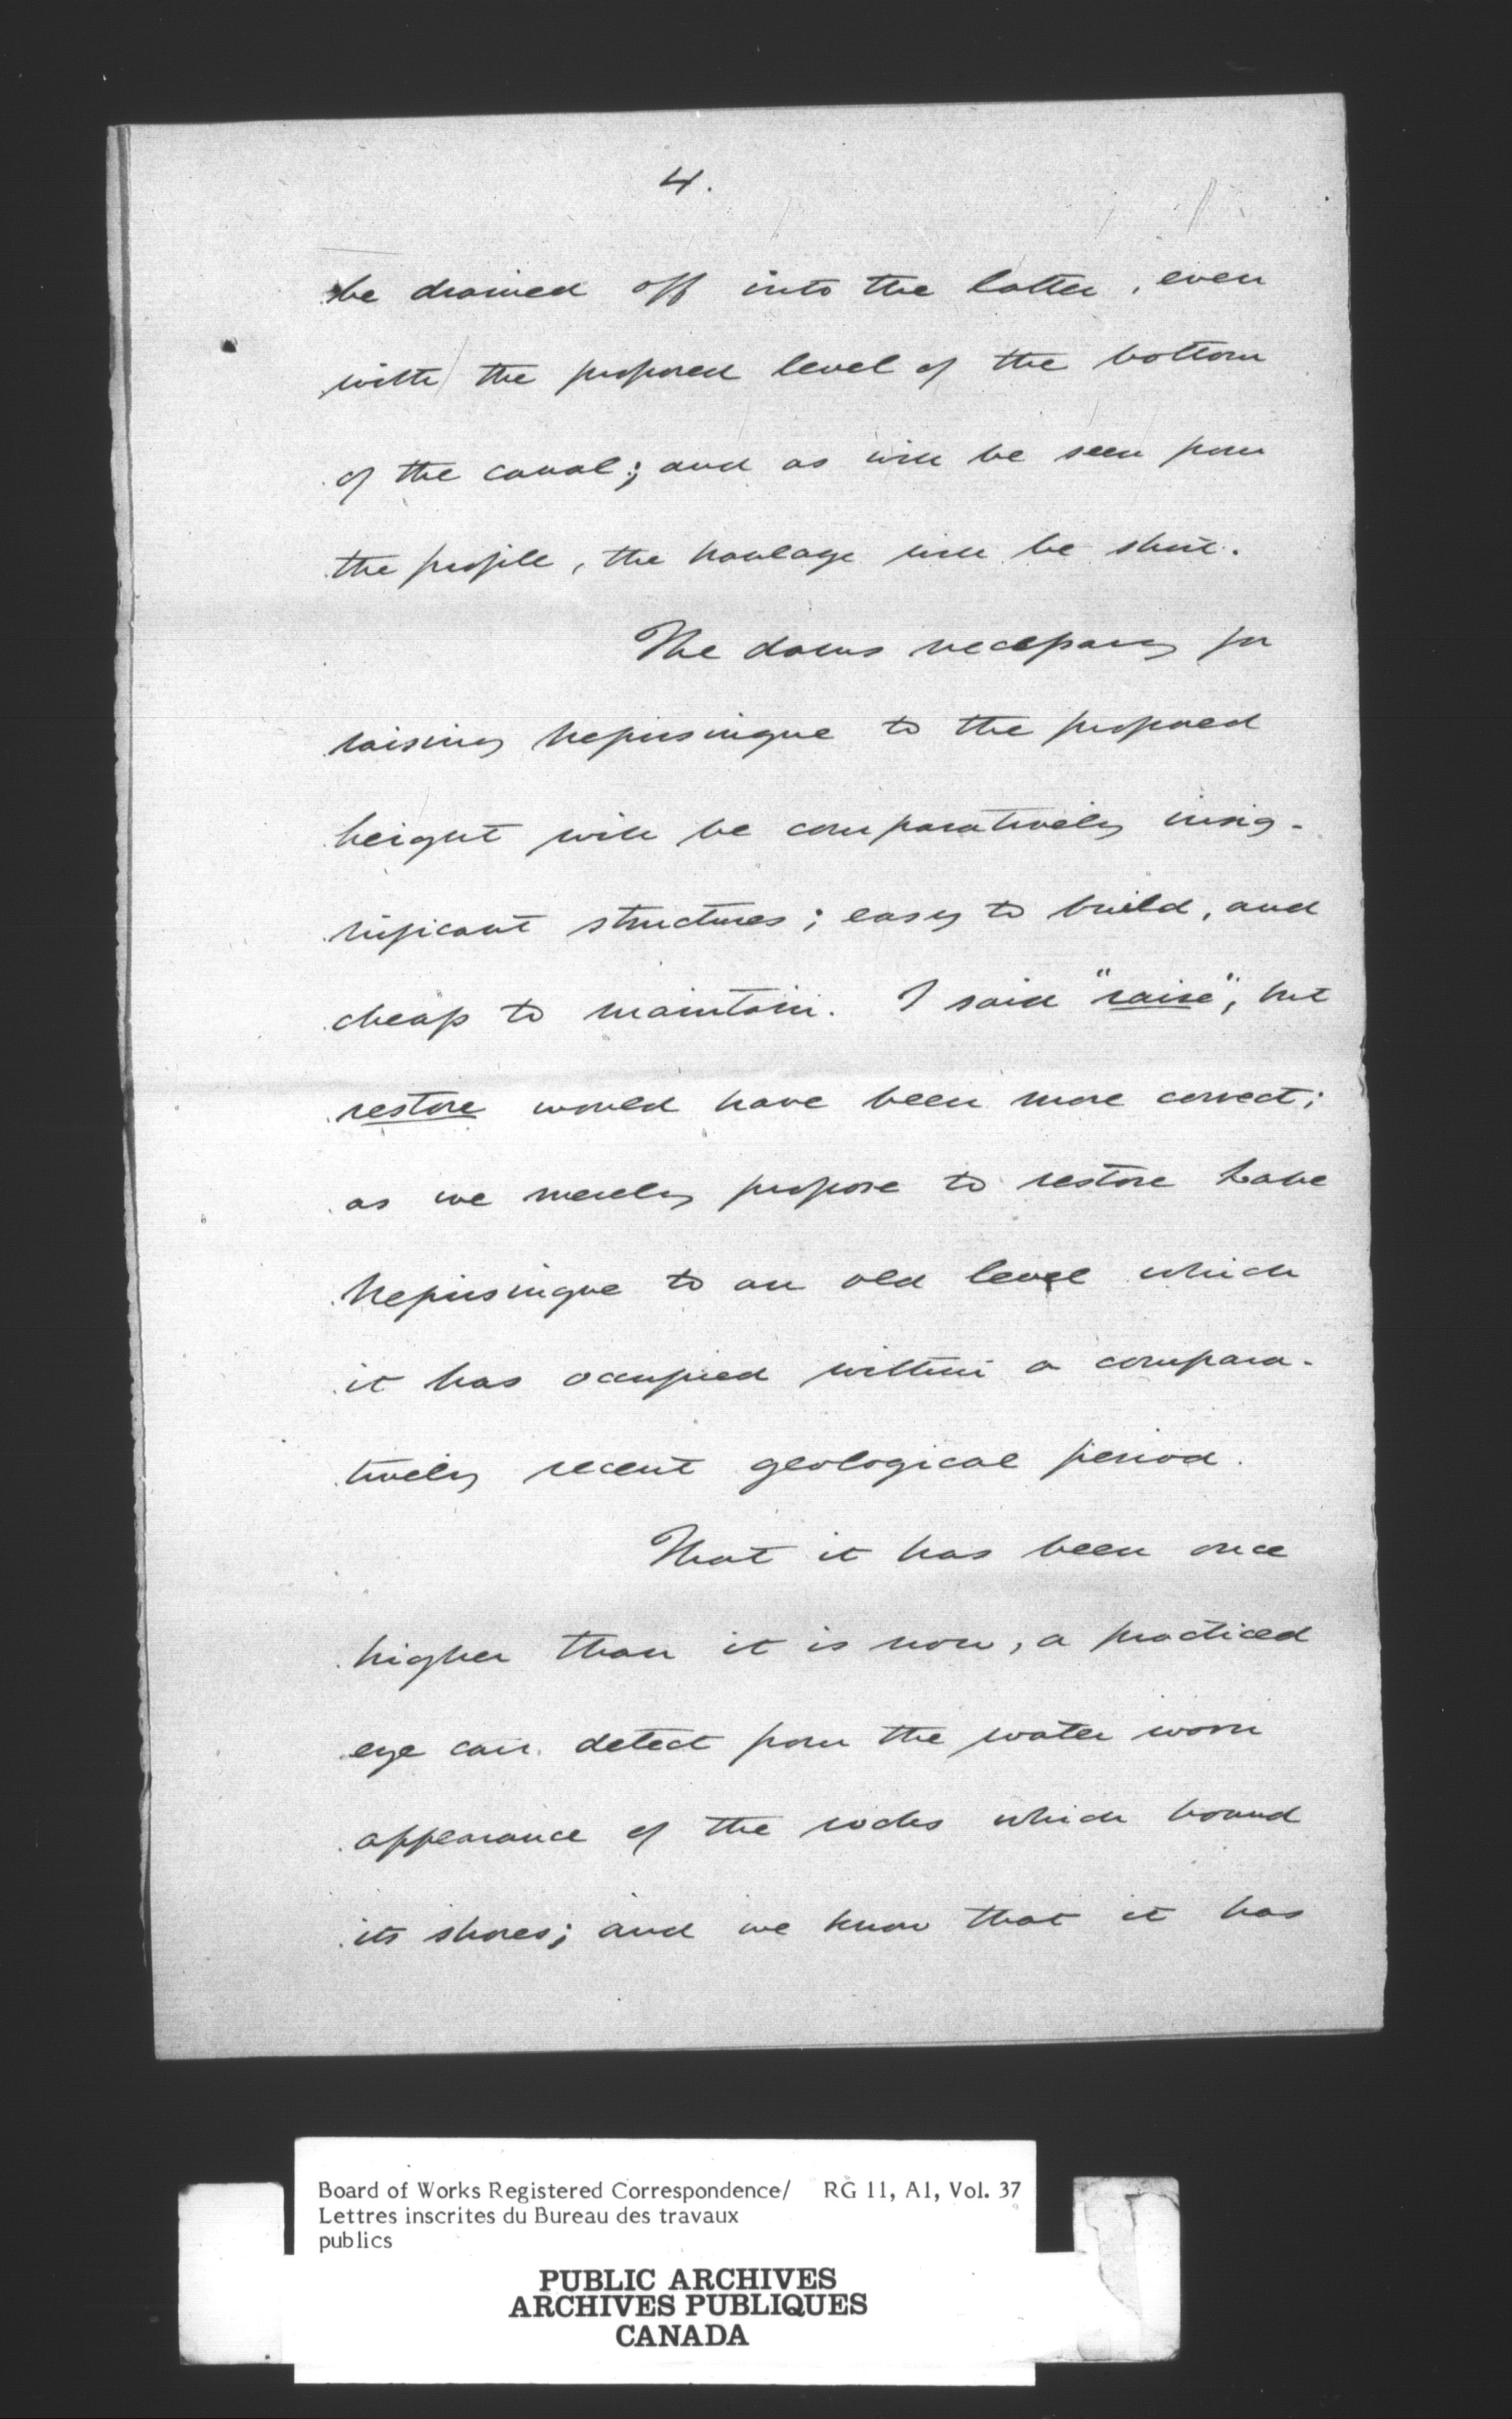 4.
be drained off into the latter, even
with the proposed level of the bottom
of the canal; and as will be seen from
the profile, the haulage will be short.
The dams necessary for
raising Nepissingue to the proposed
height will be comparatively insig-
nificant structures; easy to build, and
cheap to maintain. I said "raise", but
restore would have been more correct;
as we merely propose to restore Lake
Nepissingue to an old level which
it has occupied within a compara-
tively recent geological period.
That it has been once
higher than it is now, a practiced
eye can detect from the water worn
appearance of the rocks which bound
its shores; and we know that it has
Board of Works Registered Correspondence/ RG 11, A1, Vol. 37
Lettres inscrites du Bureau des travaux
publics
PUBLIC ARCHIVES
ARCHIVES PUBLIQUES
CANADA